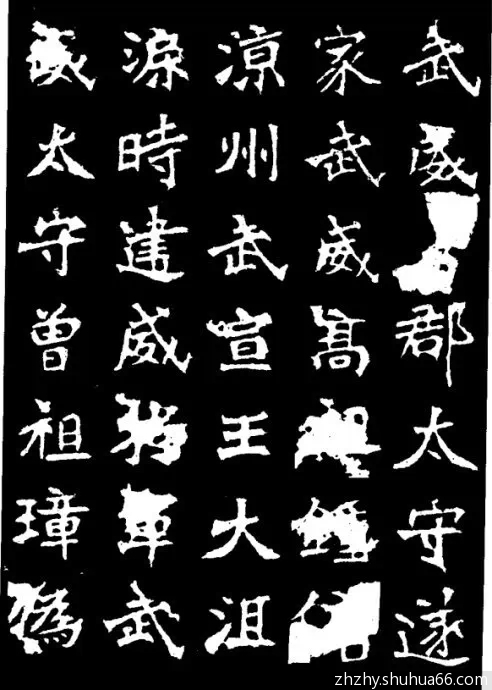 武威郡太守遂
家武威髙祖鍾
涼州武宣王大沮
渠時建威將軍武
威太守曾祖璋偽
zhzhy.shuhua66.com